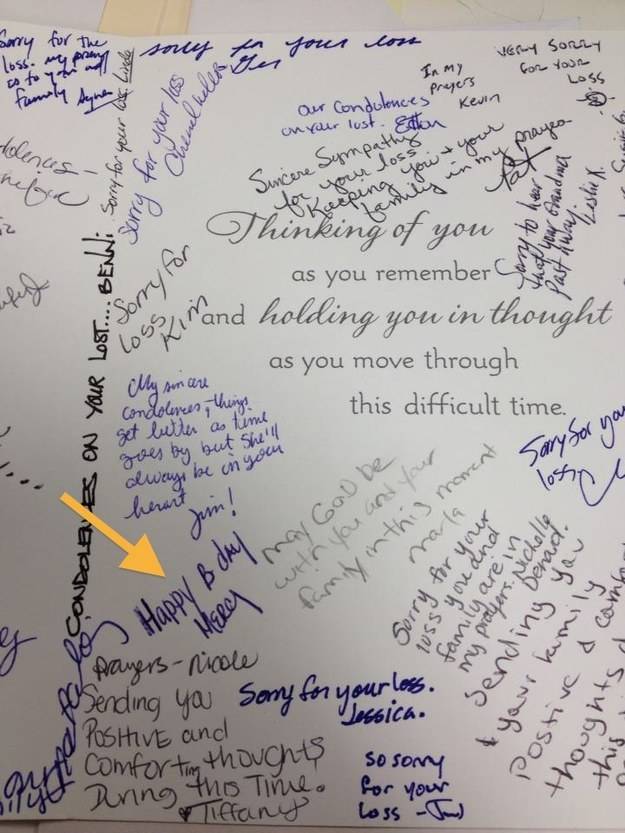 Sorry for the
loss. my prayers
go to you and
family
sorry for your loss
VERY SORRY
FOR YOUR
LOSS
In my
Prayers
Kevin
our condolences
on your lost.
Sorry for your loss. Linda
Sorry for your loss
Sincere Sympathy
for your loss.
Keeping you & your
family in my prayers
Pat
Sorry to hear
that your Grandma
Past Away
Leslie K.
Thinking of you
as you remember
and holding you in thought
as you move through
this difficult time.
Sorry for
loss
Kim
CONDOLENCES ON YOUR LOST.... BENNI
My sincere
condolences, things
get better as time
goes by but she'll
always be in your
heart
Jim!
Sorry for you
loss
may GOD be
with you and your
family in this moment
marla
Happy B day
Mercy
Sorry for your
loss you and
family are in
my prayers. Nichelle
Sending you
& your family
Postive & comfo
thoughts d
this
Prayers - Nicole
Sorry for your loss.
Jessica.
Sending you
POSITIVE and
Comforting thoughts
During this Time.
Tiffany
so sorry
for your
loss